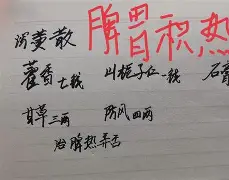 泻黄散 脾胃积热
藿香七钱 山栀子仁一钱 石膏
甘草三两 防风四两
治脾热弄舌